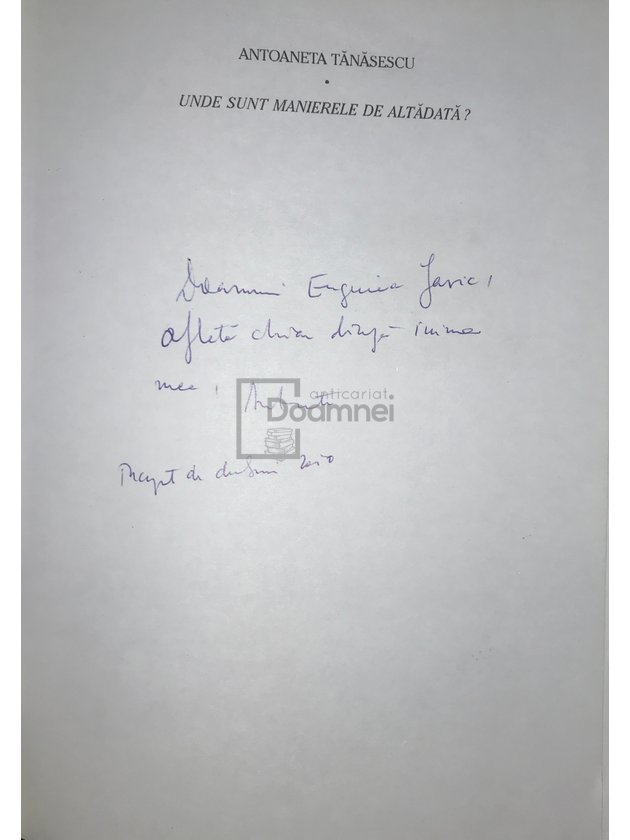 ANTOANETA TĂNĂSESCU
•
UNDE SUNT MANIERELE DE ALTĂDATĂ?
Doamnei Eugenia
aflată chiar lângă inima
mea,
anticariat
Doamnei
Început de 2010